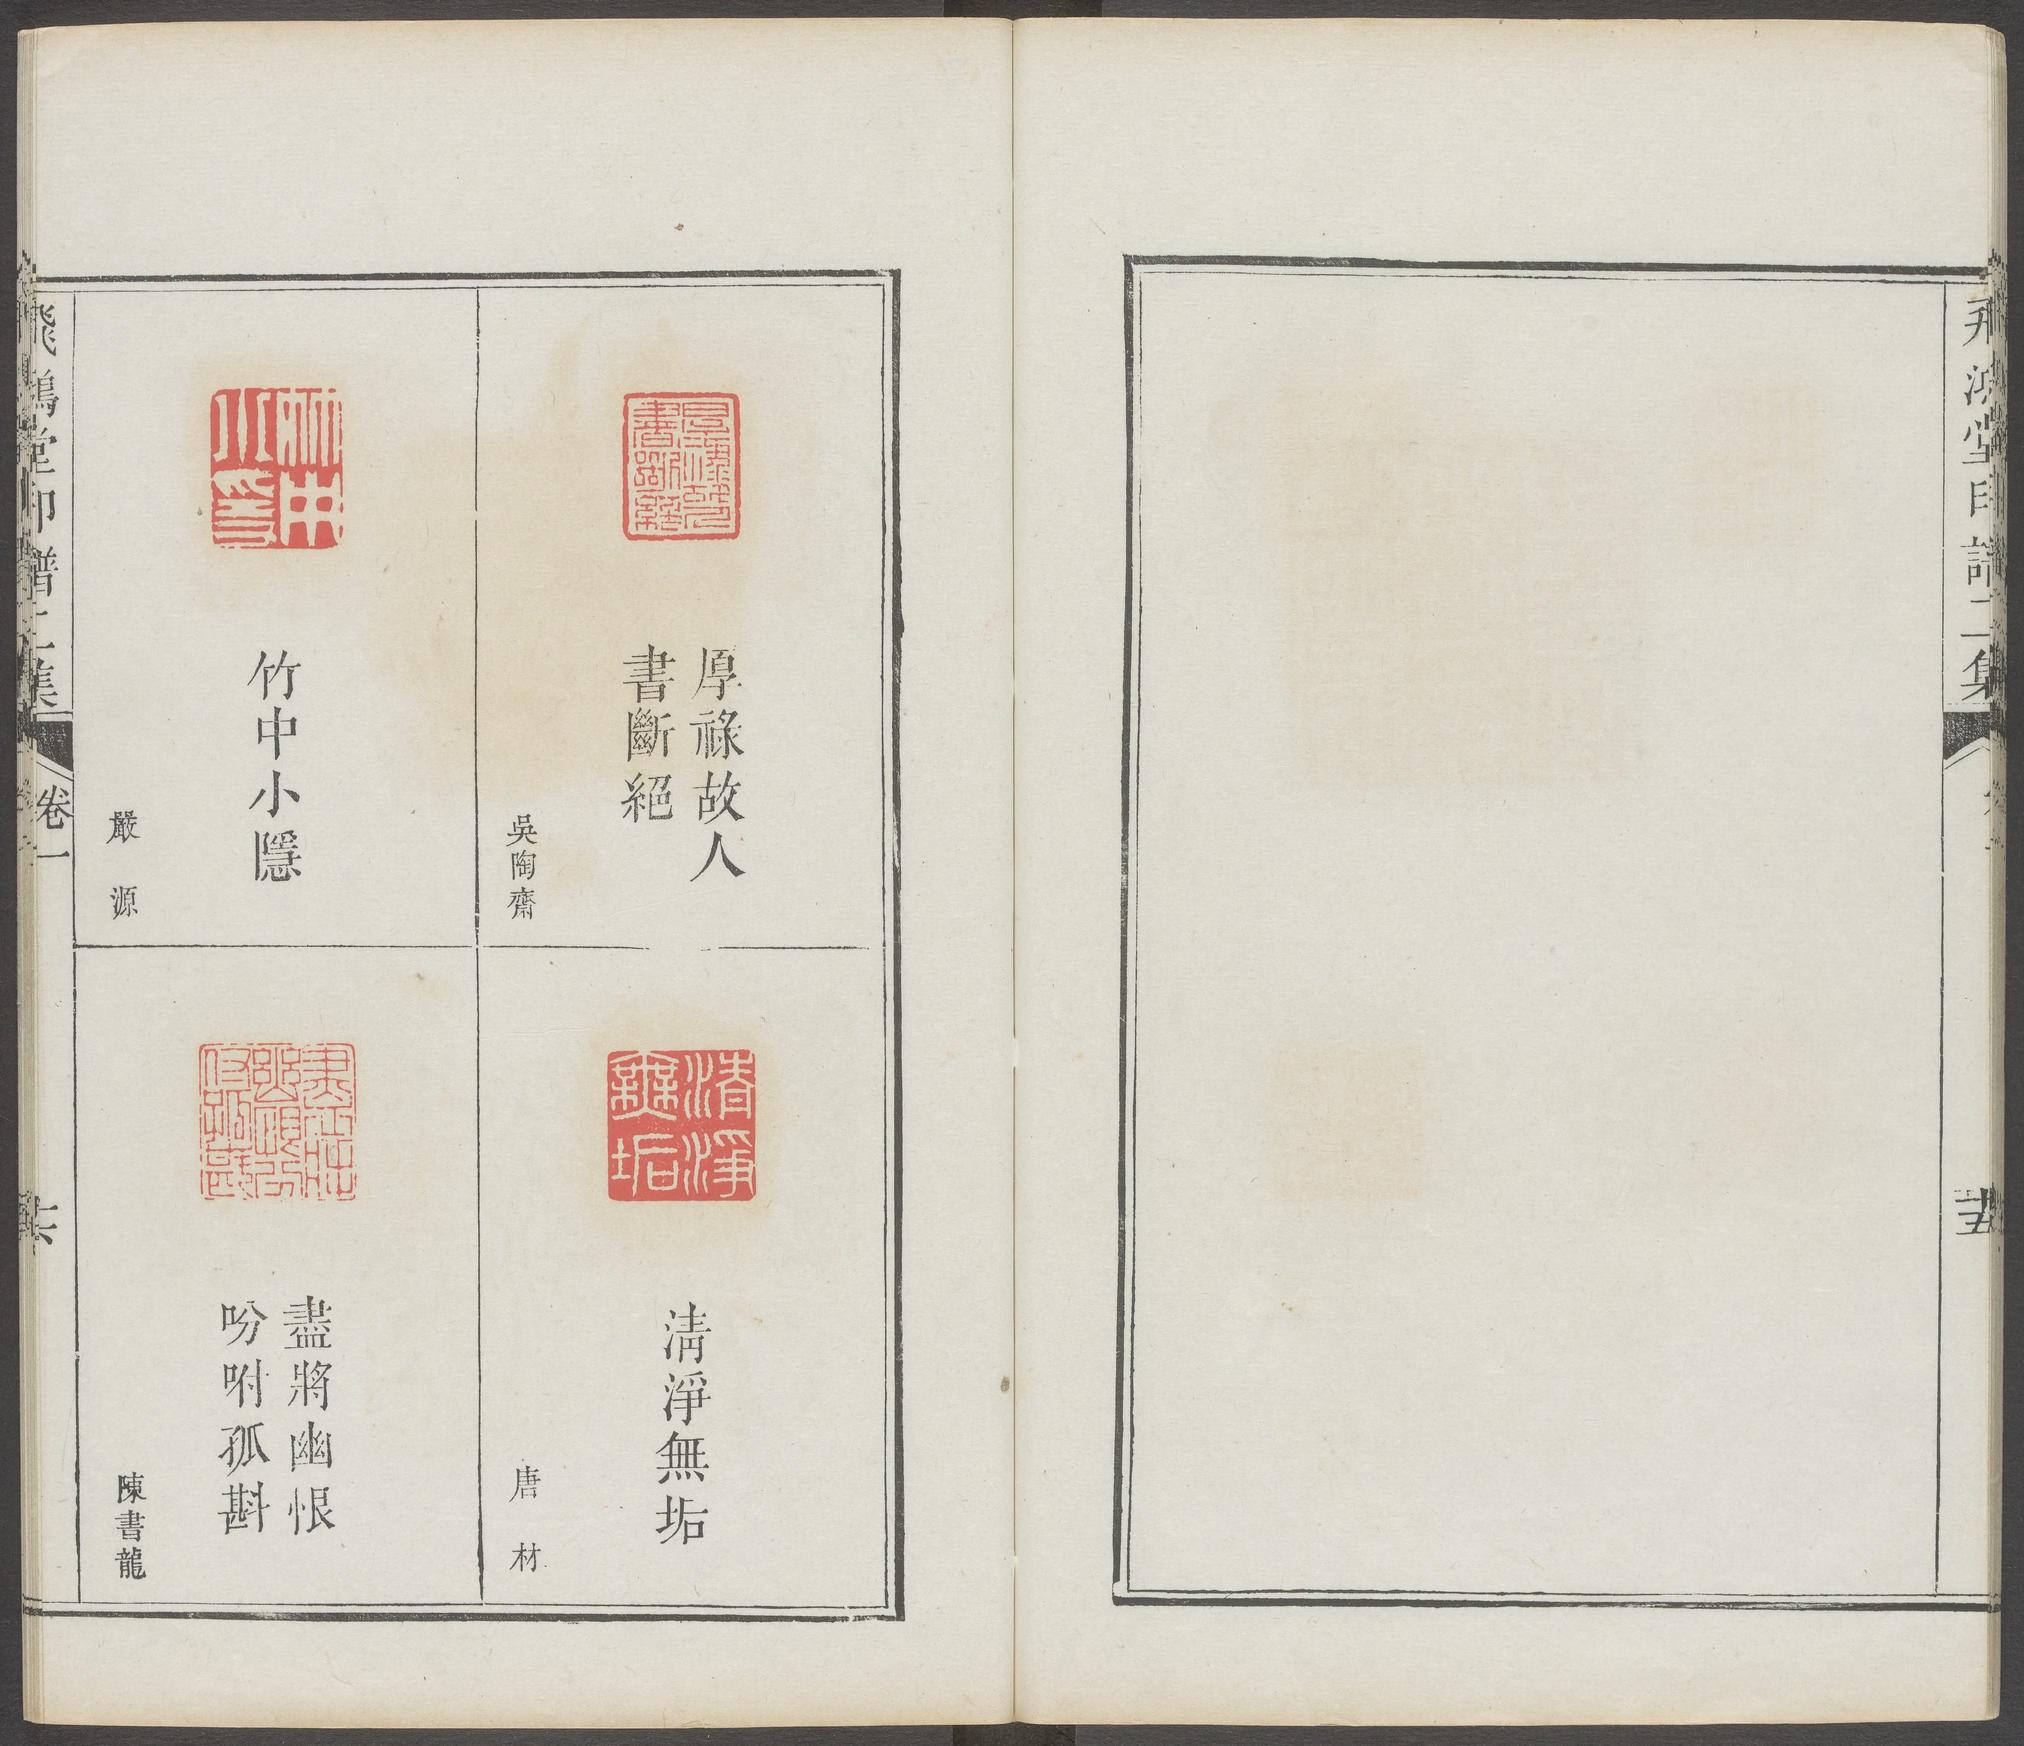 飛鴻堂印譜二集
卷一
十五
厚祿故人
書斷絕
吳陶齋
清淨無垢
唐材
竹中小隱
嚴源
盡將幽恨
吩咐孤斟
陳書龍
飛鴻堂印譜二集
卷一
十六